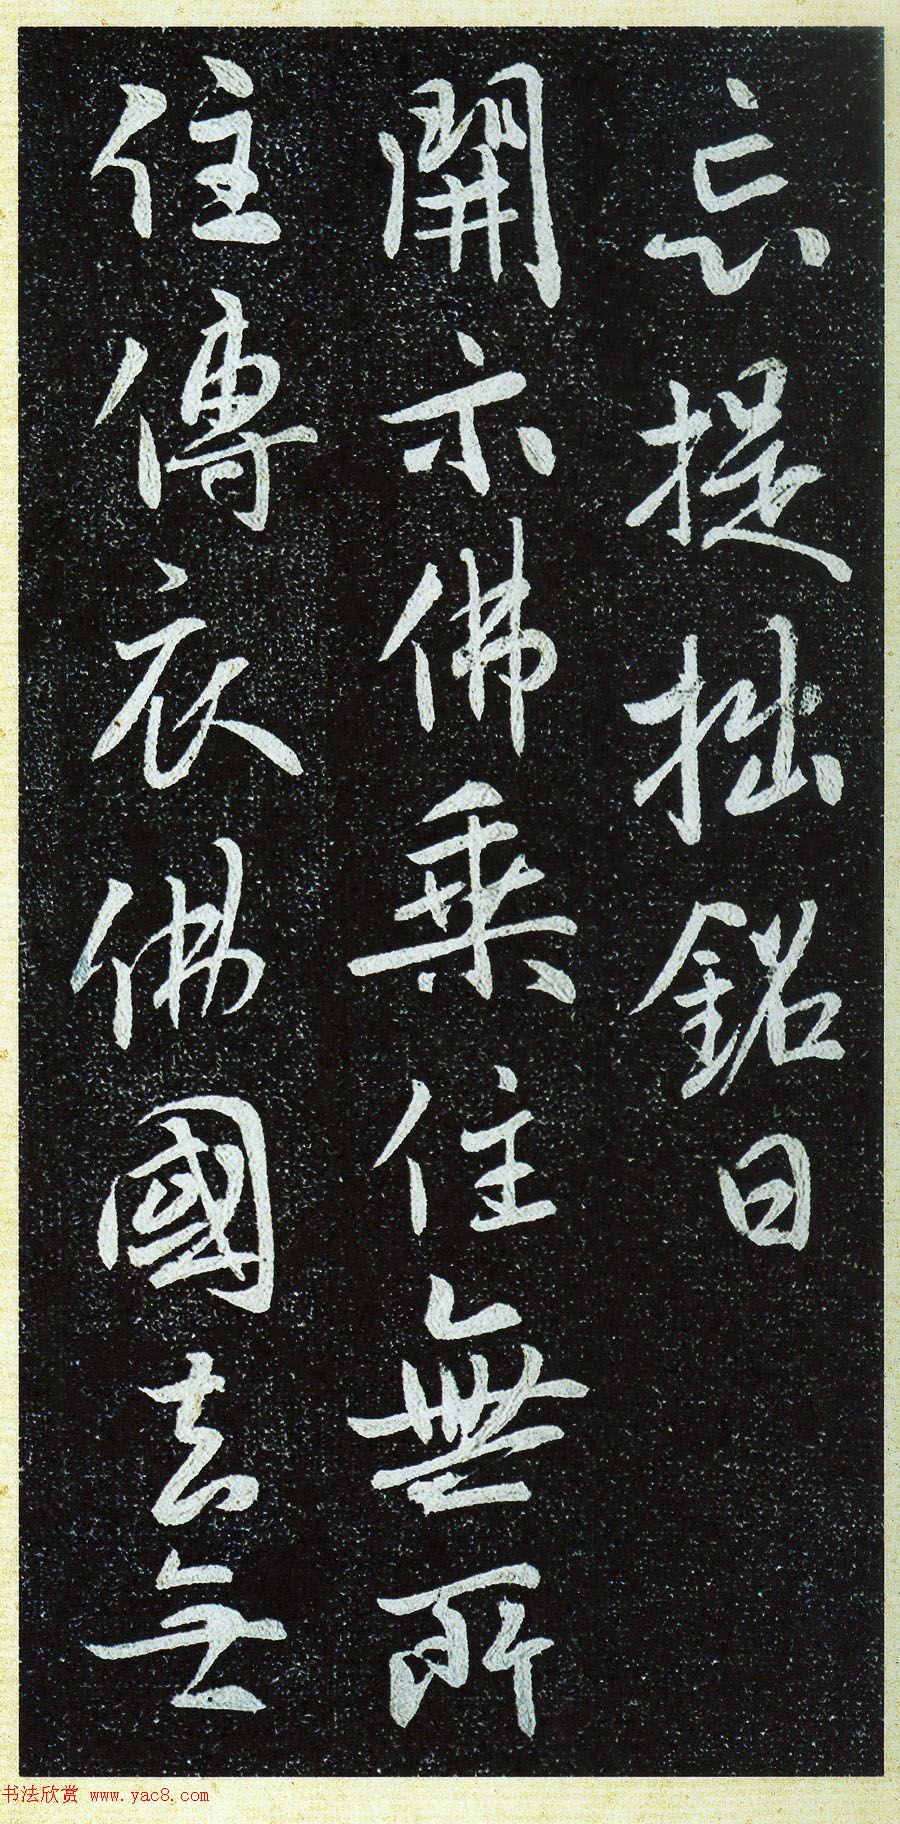 忘提拙銘曰
開示佛乘住無所
住傳衣佛國去無
书法欣赏 www.yac8.com